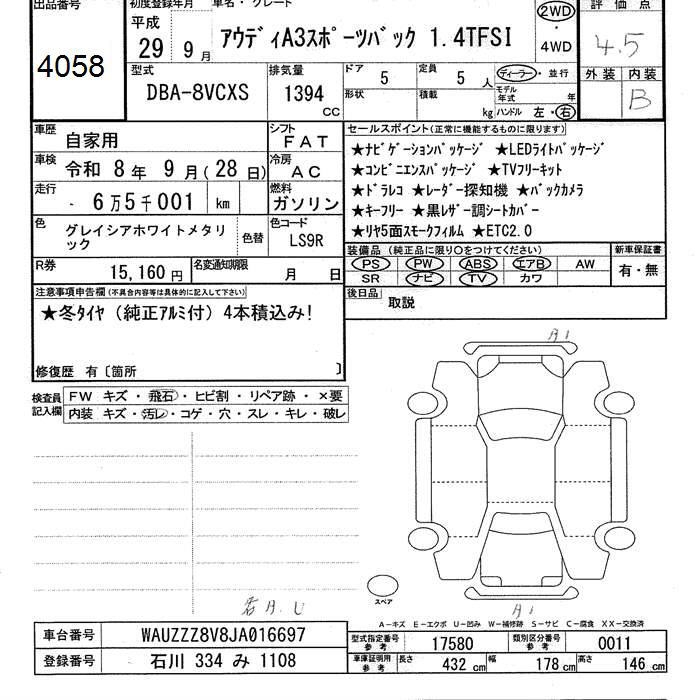 出品番号
4058
初度登録年月
平成
29 9 月
車名・グレード
アウディA3スポーツバック 1.4TFSI
2WD
・
4WD
評価点
4.5
外装 内装
B
型式
DBA-8VCXS
排気量
1394
CC
ドア
5
定員
5 人
形状
積載
kg
ディーラー・並行
モデル
年式 年
ハンドル 左・右
車歴
自家用
シフト
FAT
車検
令和 8 年 9 月 ( 28 日)
冷房
AC
走行
- 6 万 5 千 001 km
燃料
ガソリン
色
グレイシアホワイトメタリ
ック
色替
色コード
LS9R
R券
15,160 円
名変通知期限
月 日
セールスポイント(正常に機能するものに限ります)
★ナビゲーションパッケージ ★LEDライトパッケージ
★コンビニエンスパッケージ ★TVフリーキット
★ドラレコ ★レーダー探知機 ★バックカメラ
★キーフリー ★黒レザー調シートカバー
★リヤ5面スモークフィルム ★ETC2.0
装備品(純正品に限り○をつけてください)
PS PW ABS エアB AW
SR ナビ TV カワ
新車保証書
有・無
後日品
取説
注意事項申告欄(不具合内容等は具体的に記入して下さい)
★冬タイヤ(純正アルミ付)4本積込み!
修復歴 有〔箇所 〕
検査員
記入欄
FW キズ・飛石・ヒビ割・リペア跡・×要
内装 キズ・汚レ・コゲ・穴・スレ・キレ・破レ
A1
スペア
A1
U
A-キズ E-エクボ U-凹み W-補修跡 S-サビ C-腐食 XX-交換済
車台番号
WAUZZZ8V8JA016697
登録番号
石川 334 み 1108
型式指定番号
参考
17580
類別区分番号
参考
0011
車庫証明用
参考
長さ 432 cm 幅 178 cm 高さ 146 cm